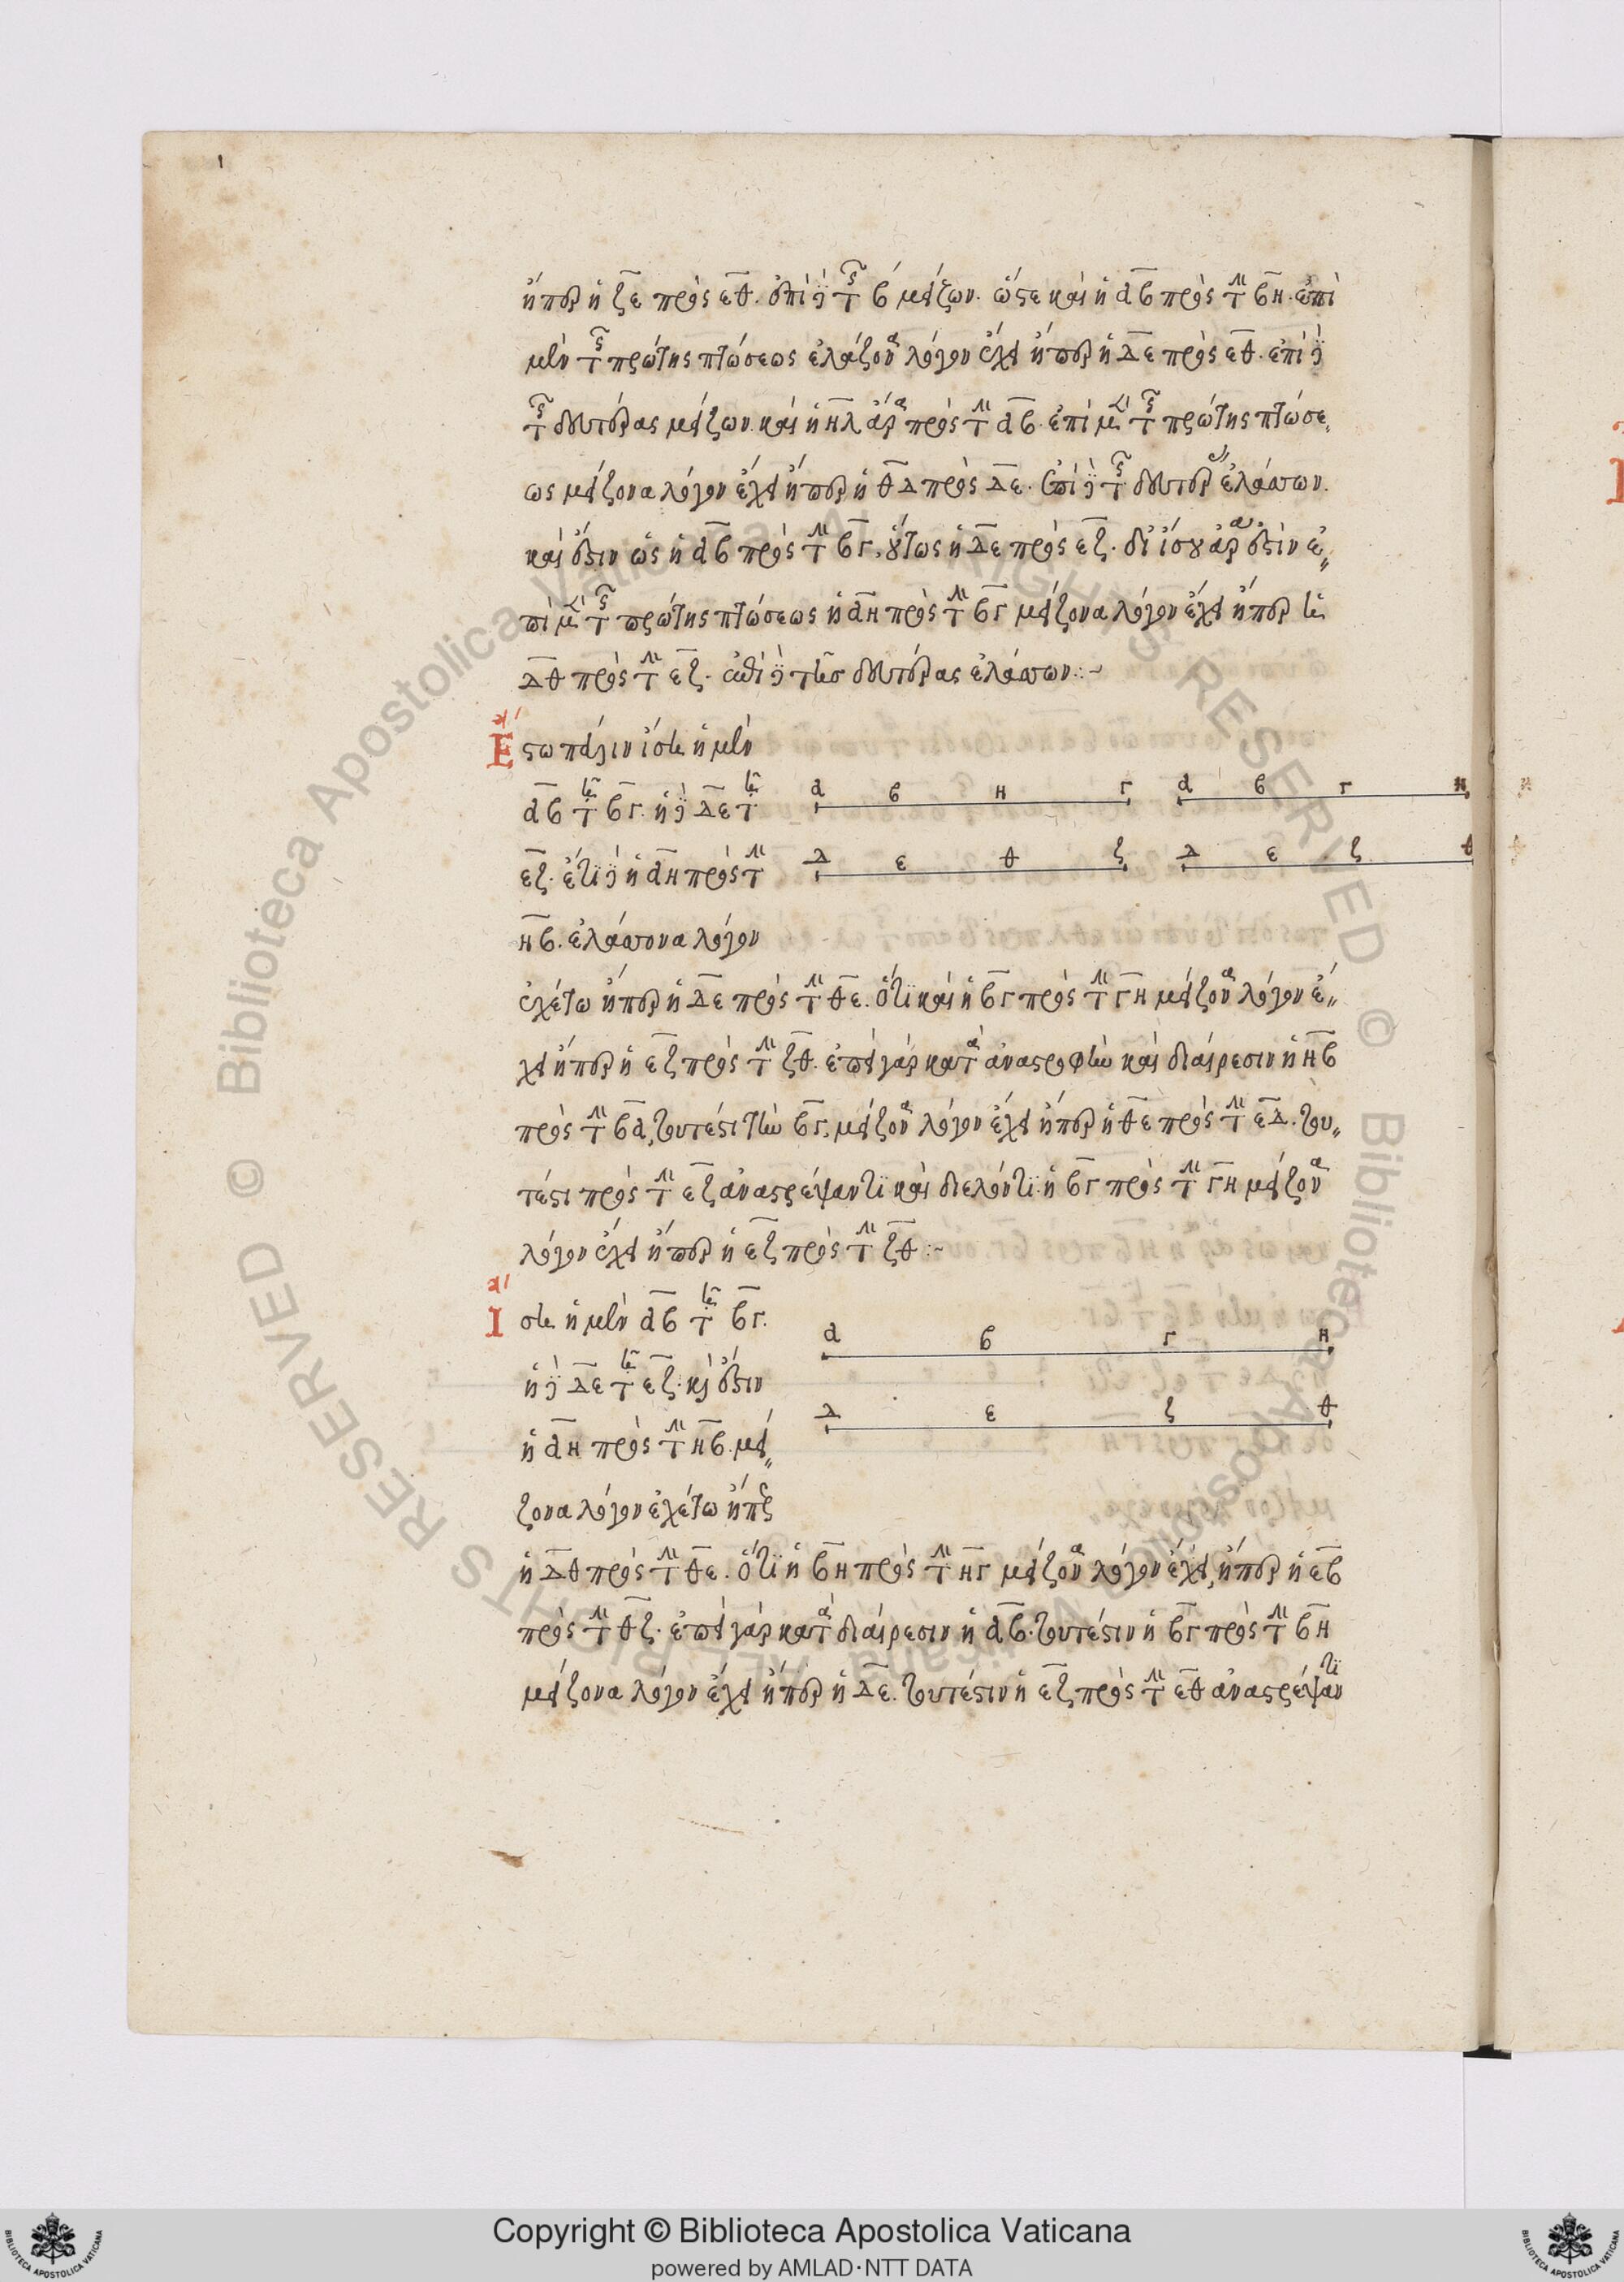 1
ἤπερ ἡ ζε πρὸς εθ. ἐπὶ δὲ τῆς β΄ μείζων. ὥστε καὶ ἡ αβ πρὸς τὴν βη. ἐπὶ
μὲν τῆς πρώτης πτώσεως ἐλάσσονα λόγον ἔχει ἤπερ ἡ δε πρὸς εθ. ἐπὶ δὲ
τῆς δευτέρας μείζων. καὶ ἡ ηα ἄρα πρὸς τὴν αβ. ἐπὶ μὲν τῆς πρώτης πτώσε
ως μείζονα λόγον ἔχει ἤπερ ἡ θδ πρὸς δε. ἐπὶ δὲ τῆς δευτέρας ἐλάττων.
καὶ ἔστιν ὡς ἡ αβ πρὸς τὴν βγ, οὕτως ἡ δε πρὸς εζ. δι ἴσου ἄρα ἐστὶν ἐ
πὶ μὲν τῆς πρώτης πτώσεως ἡ αη πρὸς τὴν βγ μείζονα λόγον ἔχει ἤπερ ἡ
δθ πρὸς τὴν εζ. ἐπὶ δὲ τῆς δευτέρας ἐλάττων :~
Ἔστω πάλιν ἴση ἡ μὲν
αβ τῇ βγ. ἡ δὲ δε τῇ
εζ. ἔτι δὲ ἡ αη πρὸς τὴν
ηβ. ἐλάττονα λόγον
α β η γ α β γ η
δ ε θ ζ δ ε ζ θ
ἐχέτω ἤπερ ἡ δε πρὸς τὴν θε. ὅτι καὶ ἡ βγ πρὸς τὴν γη μείζονα λόγον ἔ
χει ἤπερ ἡ εζ πρὸς τὴν ζθ. ἐπεὶ γὰρ κατὰ ἀναστροφὴν καὶ διαίρεσιν ἡ ηβ
πρὸς τὴν βα, τουτέστι τὴν βγ, μείζονα λόγον ἔχει ἤπερ ἡ θε πρὸς τὴν εδ. του
τέστι πρὸς τὴν εζ ἀναστρέψαντι καὶ διελόντι ἡ βγ πρὸς τὴν γη μείζονα
λόγον ἔχει ἤπερ ἡ εζ πρὸς τὴν ζθ :~
Ἴση ἡ μὲν αβ τῇ βγ.
ἡ δὲ δε τῇ εζ. καὶ ἔστιν
ἡ αη πρὸς τὴν ηβ. μεί
ζονα λόγον ἐχέτω ἤπερ
α β γ η
δ ε ζ θ
ἡ δθ πρὸς τὴν θε. ὅτι ἡ βη πρὸς τὴν ηγ μείζονα λόγον ἔχει, ἤπερ ἡ εβ
πρὸς τὴν θζ. ἐπεὶ γὰρ κατὰ διαίρεσιν ἡ αβ. τουτέστιν ἡ βγ πρὸς τὴν βη
μείζονα λόγον ἔχει ἤπερ ἡ δε. τουτέστιν ἡ εζ πρὸς τὴν εθ ἀναστρέψαντι
© Biblioteca Apostolica Vaticana ALL RIGHTS RESERVED
Copyright © Biblioteca Apostolica Vaticana
powered by AMLAD·NTT DATA